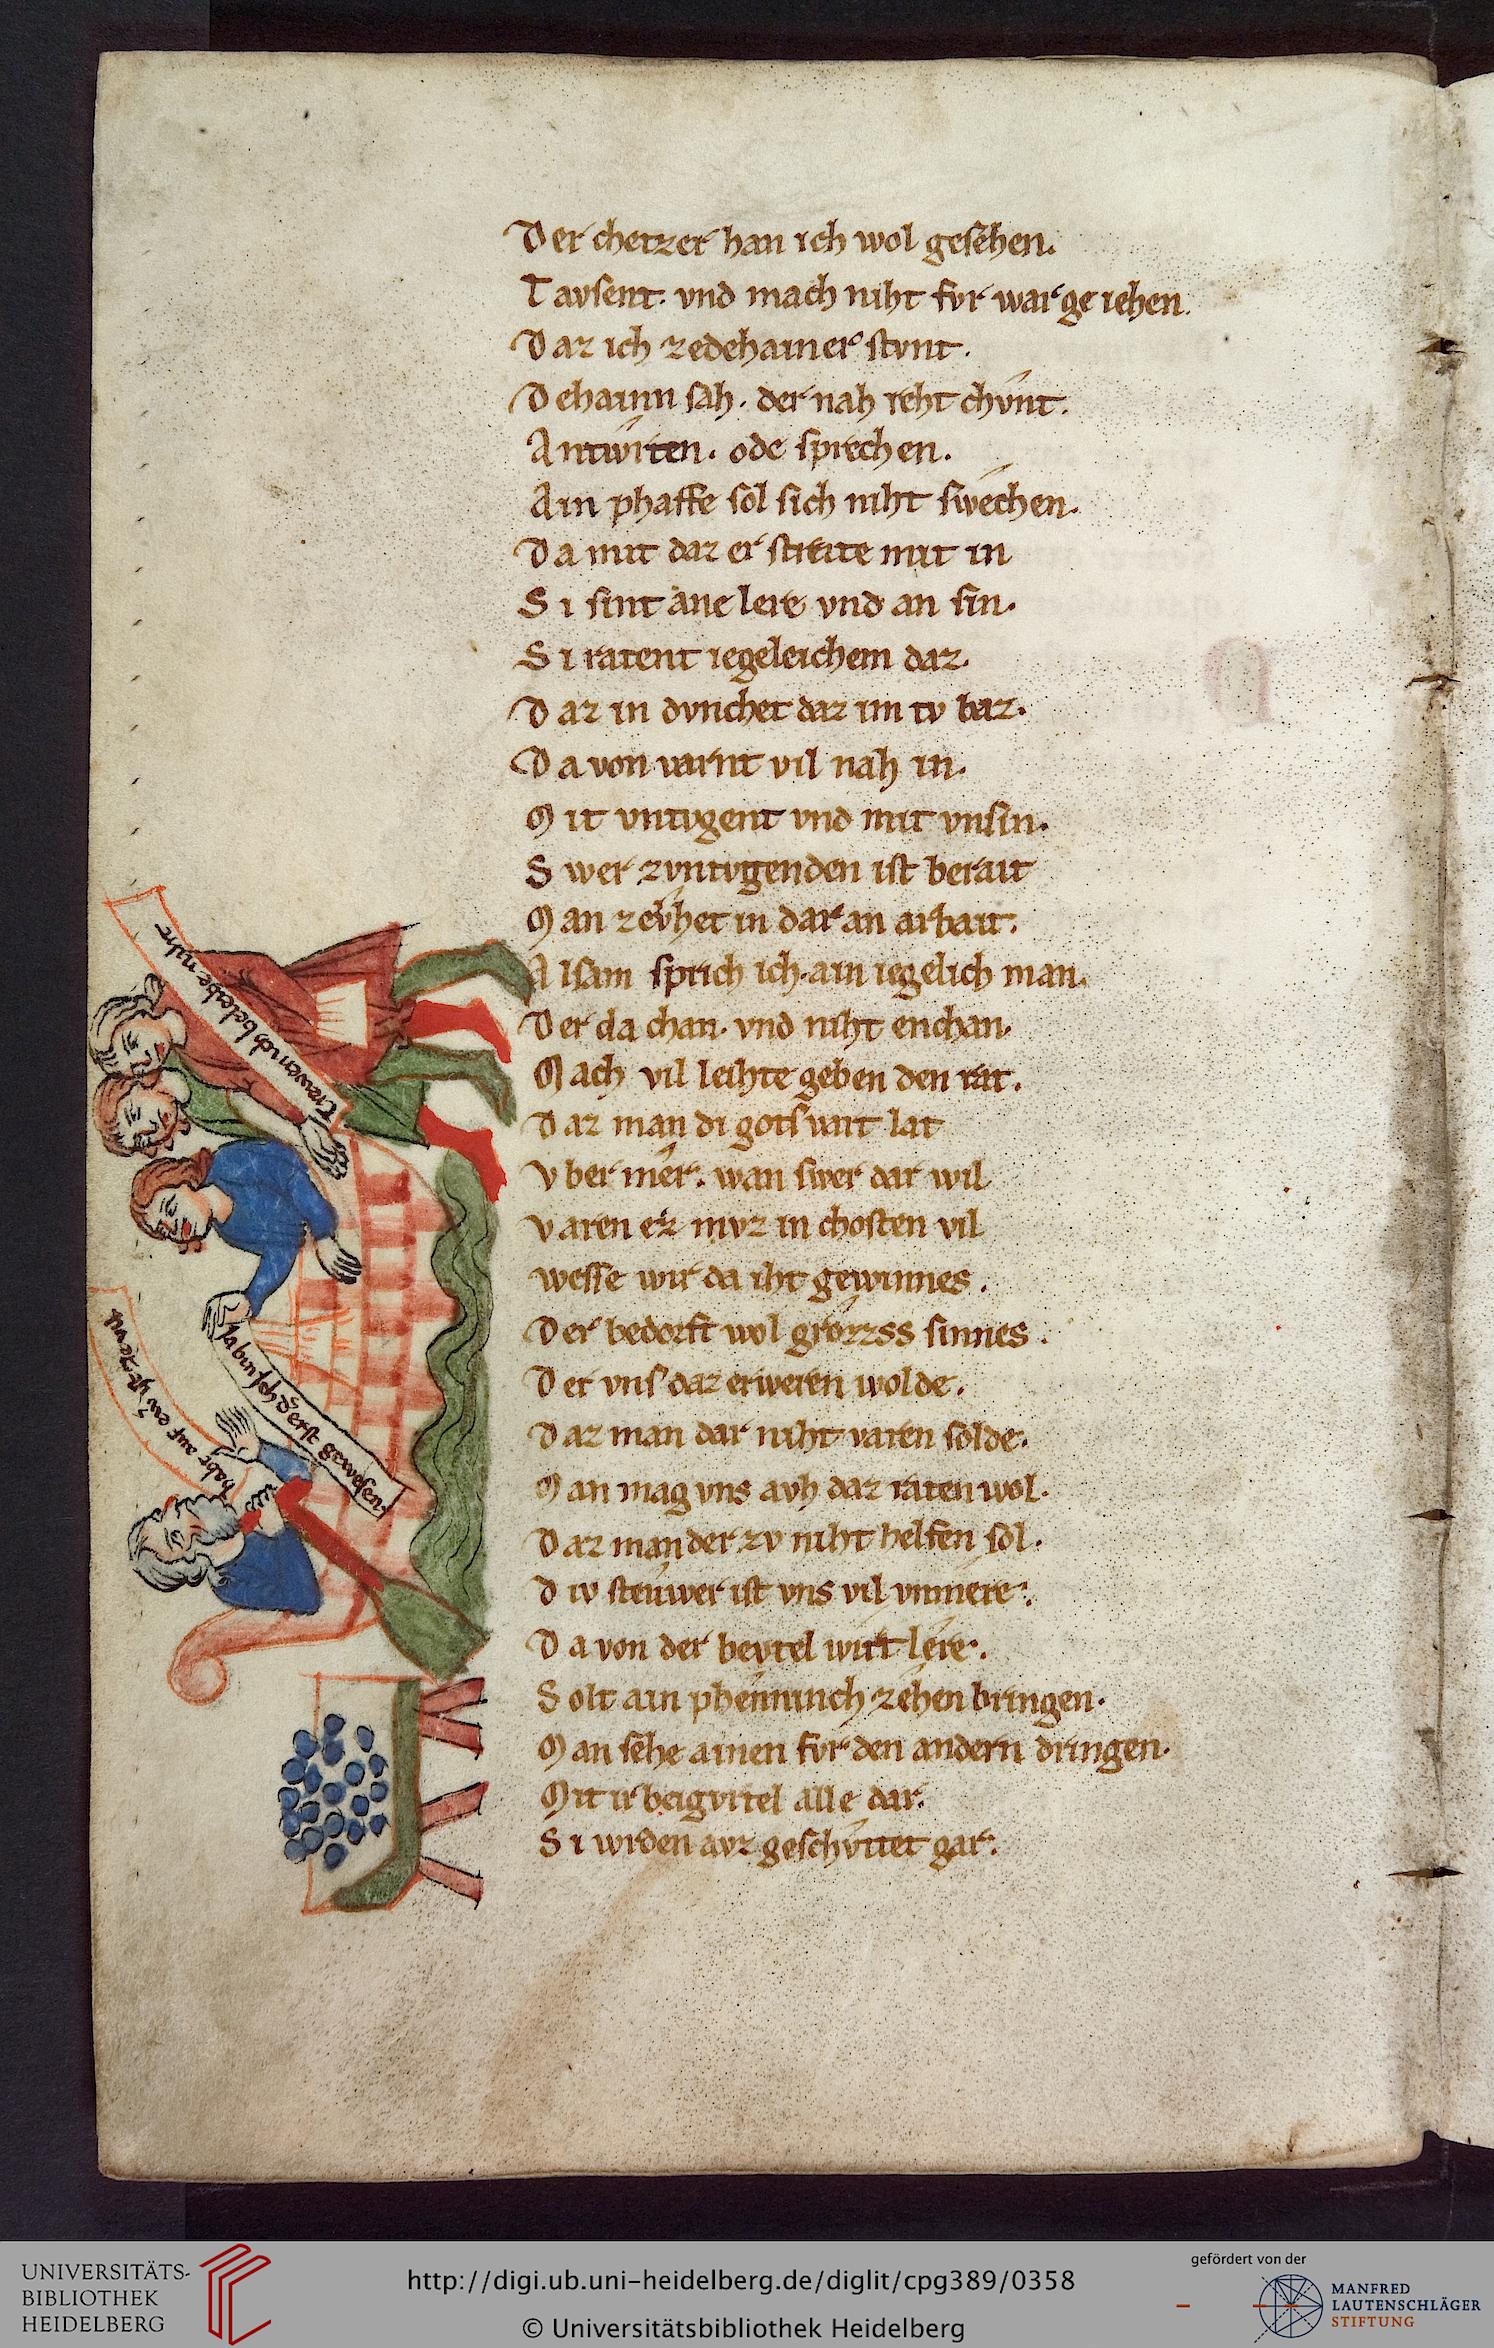 Der chetzer han ich wol gesehen.
Tavsent. vnd mach niht fvr war ge iehen.
Daz ich zedehainer stvnt.
Dehainn sah. der nah reht chvnt.
Antwrten. ode sprechen.
Ain phaffe sol sich niht swechen.
Da mit daz er streite mit in
Si sint ane lere vnd an sin.
Si ratent iegeleichem daz.
Daz in dvnchet daz im tv baz.
Da von varnt vil nah in.
Mit vntvgent vnd mit vnsin.
Swer zvntvgenden ist berait
Man zevhet in dar an arbait.
Alsam sprich ich. ain iegelich man.
Der da chan. vnd niht enchan.
Mach vil leihte geben den rat.
Daz man di gots vart lat
Vber mer. wan swer dar wil
Varen er mvz in chosten vil
wesse wir da iht gewinnes.
Der bedorft wol grozzss sinnes.
Der vns daz erweren wolde.
Daz man dar niht varen solde.
Man mag vns avh daz raten wol.
Daz man der zv niht helfen sol.
Div steuwer ist vns vil vnmere.
Da von der bevtel wirt lere.
Solt ain phenninch zehen bringen.
Man sehe ainen fvr den andern dringen.
Mit ir beigvrtel alle dar.
Si wrden avz geschvttet gar.
Trewen ich beleibe niht
la bin ich d erst gewesen.
habt auf ew ist ze vil
UNIVERSITÄTS-
BIBLIOTHEK
HEIDELBERG
http://digi.ub.uni-heidelberg.de/diglit/cpg389/0358
© Universitätsbibliothek Heidelberg
gefördert von der
MANFRED
LAUTENSCHLÄGER
STIFTUNG